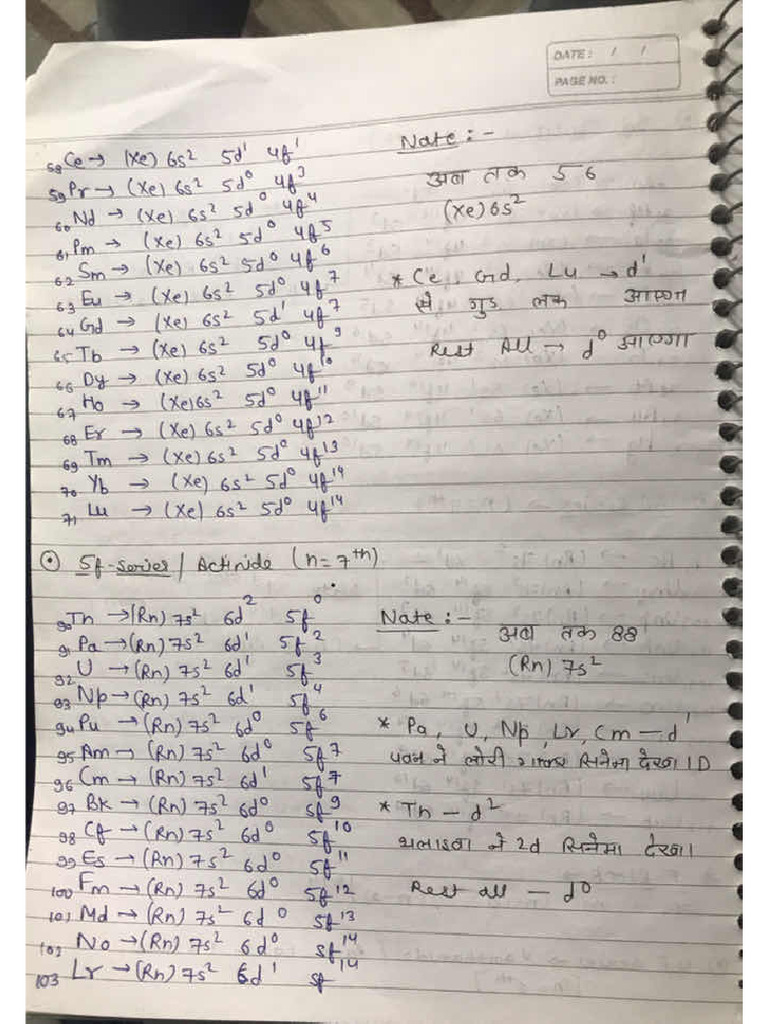 DATE: / /
PAGE NO.:
58Ce → (Xe) 6s² 5d¹ 4f¹
59Pr → (Xe) 6s² 5d⁰ 4f³
60Nd → (Xe) 6s² 5d⁰ 4f⁴
61Pm → (Xe) 6s² 5d⁰ 4f⁵
62Sm → (Xe) 6s² 5d⁰ 4f⁶
63Eu → (Xe) 6s² 5d⁰ 4f⁷
64Gd → (Xe) 6s² 5d¹ 4f⁷
65Tb → (Xe) 6s² 5d⁰ 4f⁹
66Dy → (Xe) 6s² 5d⁰ 4f¹⁰
67Ho → (Xe) 6s² 5d⁰ 4f¹¹
68Er → (Xe) 6s² 5d⁰ 4f¹²
69Tm → (Xe) 6s² 5d⁰ 4f¹³
70Yb → (Xe) 6s² 5d⁰ 4f¹⁴
71Lu → (Xe) 6s² 5d⁰ 4f¹⁴
Note :-
अब तक 56
(Xe) 6s²
* Ce, Gd, Lu → d¹
से गुड लक आएगा
Rest All → d⁰ आएगा
⊙ 5f-series / Actinide (n=7th)
90Th → (Rn) 7s² 6d² 5f⁰
91Pa → (Rn) 7s² 6d¹ 5f²
92U → (Rn) 7s² 6d¹ 5f³
93Np → (Rn) 7s² 6d¹ 5f⁴
94Pu → (Rn) 7s² 6d⁰ 5f⁶
95Am → (Rn) 7s² 6d⁰ 5f⁷
96Cm → (Rn) 7s² 6d¹ 5f⁷
97Bk → (Rn) 7s² 6d⁰ 5f⁹
98Cf → (Rn) 7s² 6d⁰ 5f¹⁰
99Es → (Rn) 7s² 6d⁰ 5f¹¹
100Fm → (Rn) 7s² 6d⁰ 5f¹²
101Md → (Rn) 7s² 6d⁰ 5f¹³
102No → (Rn) 7s² 6d⁰ 5f¹⁴
103Lr → (Rn) 7s² 6d¹ 5f¹⁴
Note :-
अब तक 88
(Rn) 7s²
* Pa, U, Np, Lr, Cm — d¹
ने लोरी सिनेमा देखा 1D
* Th — d²
ने 2d सिनेमा देखा।
Rest all — d⁰